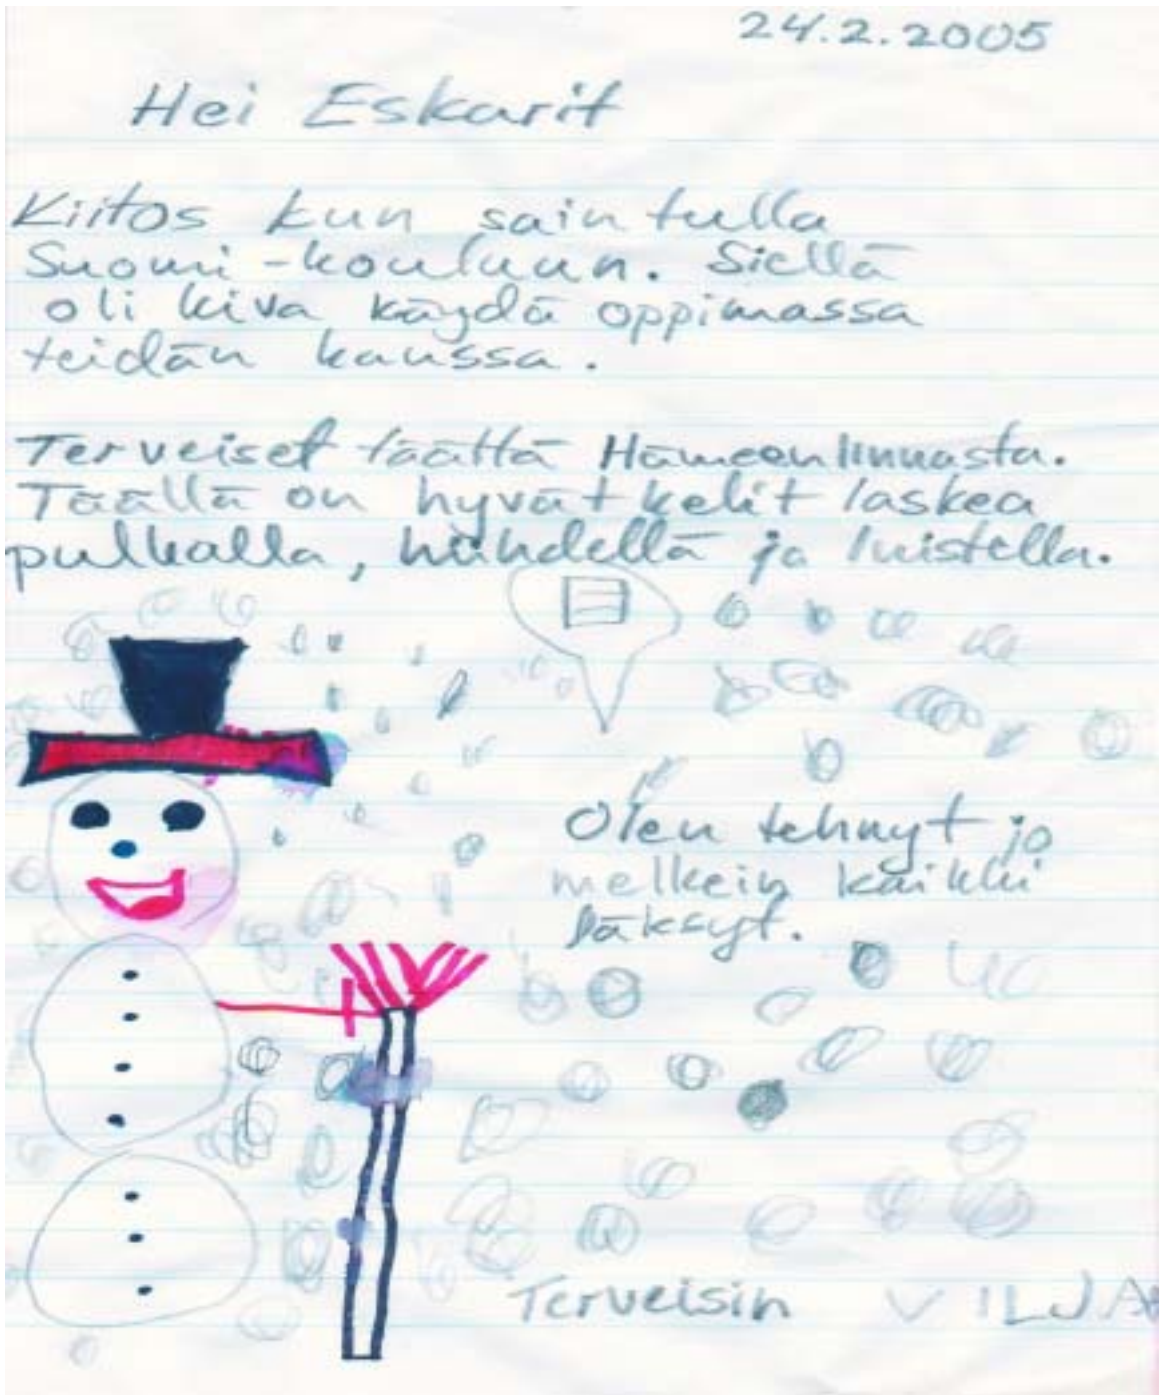 24.2.2005
Hei Eskarit
Kiitos kun sain tulla
Suomi-kouluun. Siellä
oli kiva käydä oppimassa
teidän kanssa.
Terveiset täältä Hämeenlinnasta.
Täällä on hyvät kelit laskea
pulkalla, hiihdellä ja luistella.
Olen tehnyt jo
melkein kaikki
läksyt.
Terveisin VILJA